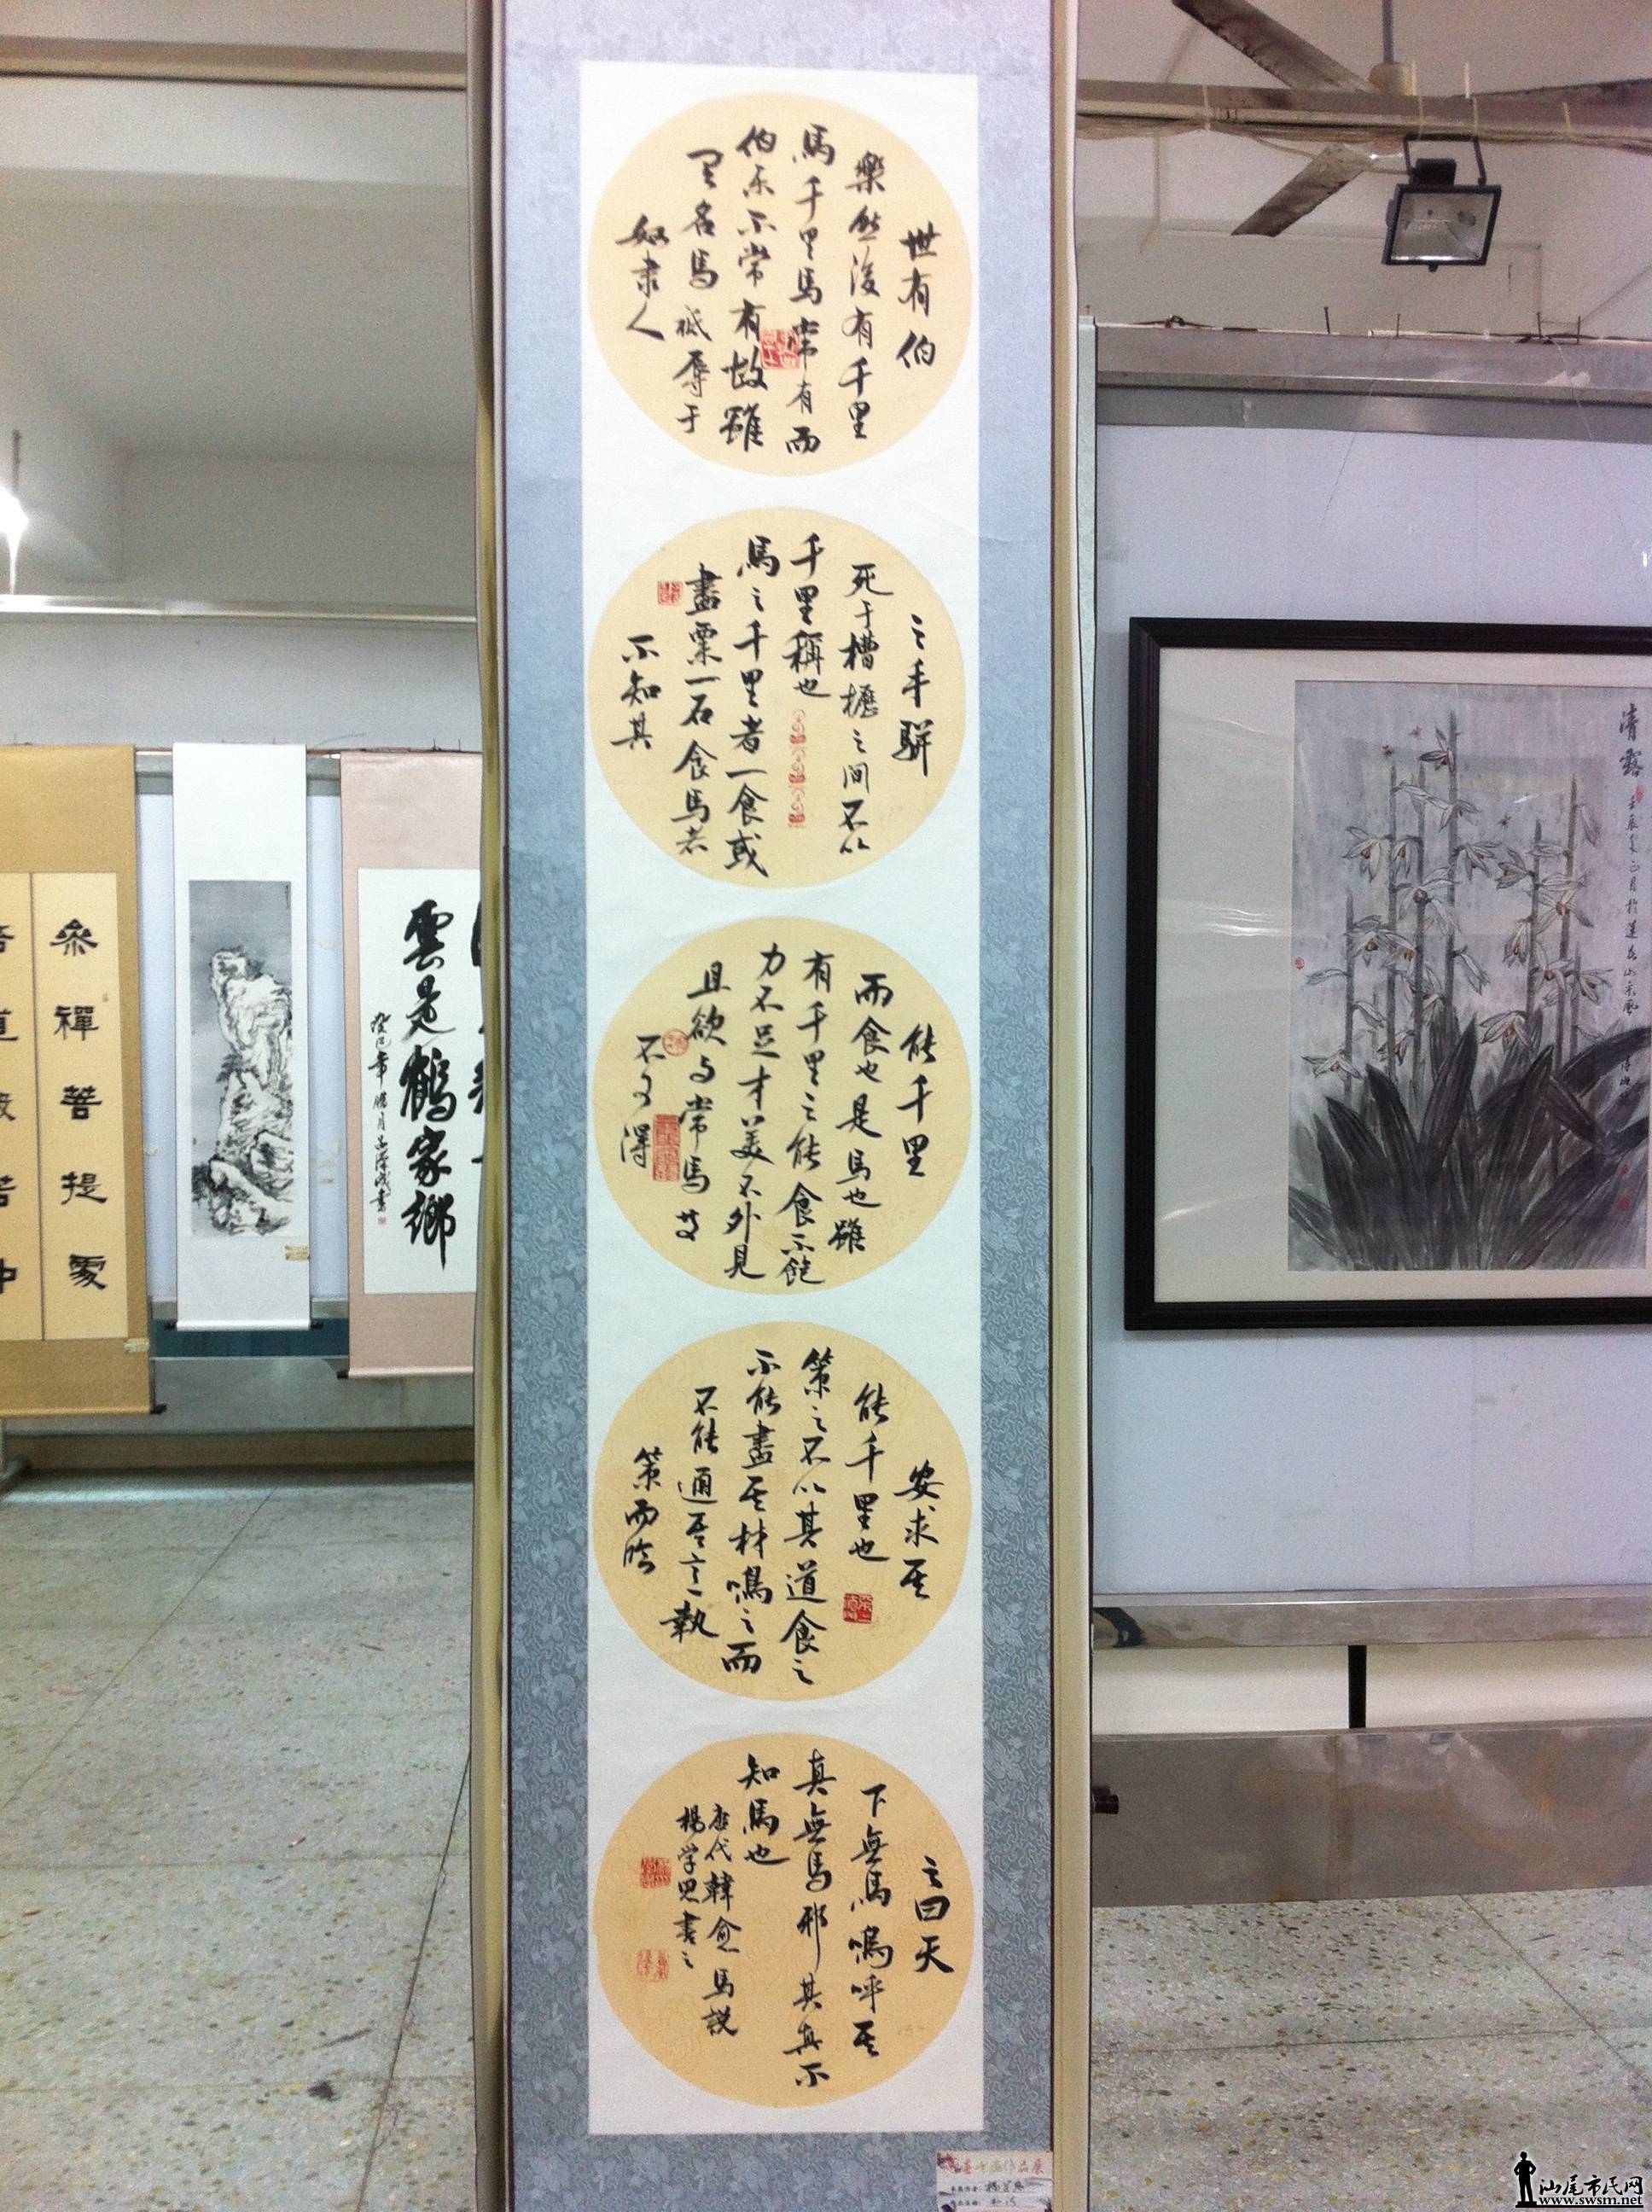 世有伯
樂然後有千里
馬千里馬常有而
伯乐不常有故雖
名馬祇辱于
奴隶人
之手駢
死于槽櫪之间不以
千里稱也
馬之千里者一食或
盡粟一石食馬者
不知其
能千里
而食也是馬也雖
有千里之能食不飽
力不足才美不外見
且欲与常馬等
不可得
安求其
能千里也
策之不以其道食之
不能盡其材鳴之而
不能通其意執
策而临
之曰天
下無馬嗚呼其
真無馬邪其真不
知馬也
唐代韓愈馬説
楊学思書之
清露
雲是鶴家鄉
參禪菩提
汕尾市民网
www.swsm.net